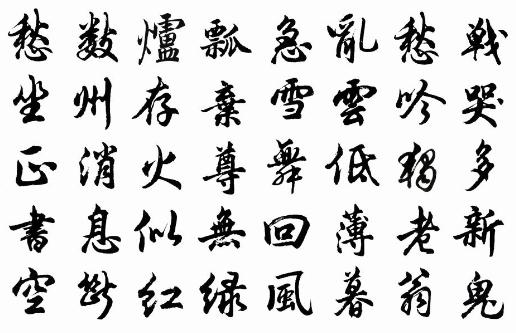 戰哭多新鬼
愁吟獨老翁
亂雲低薄暮
急雪舞回風
瓢棄尊無緑
爐存火似紅
數州消息斷
愁坐正書空